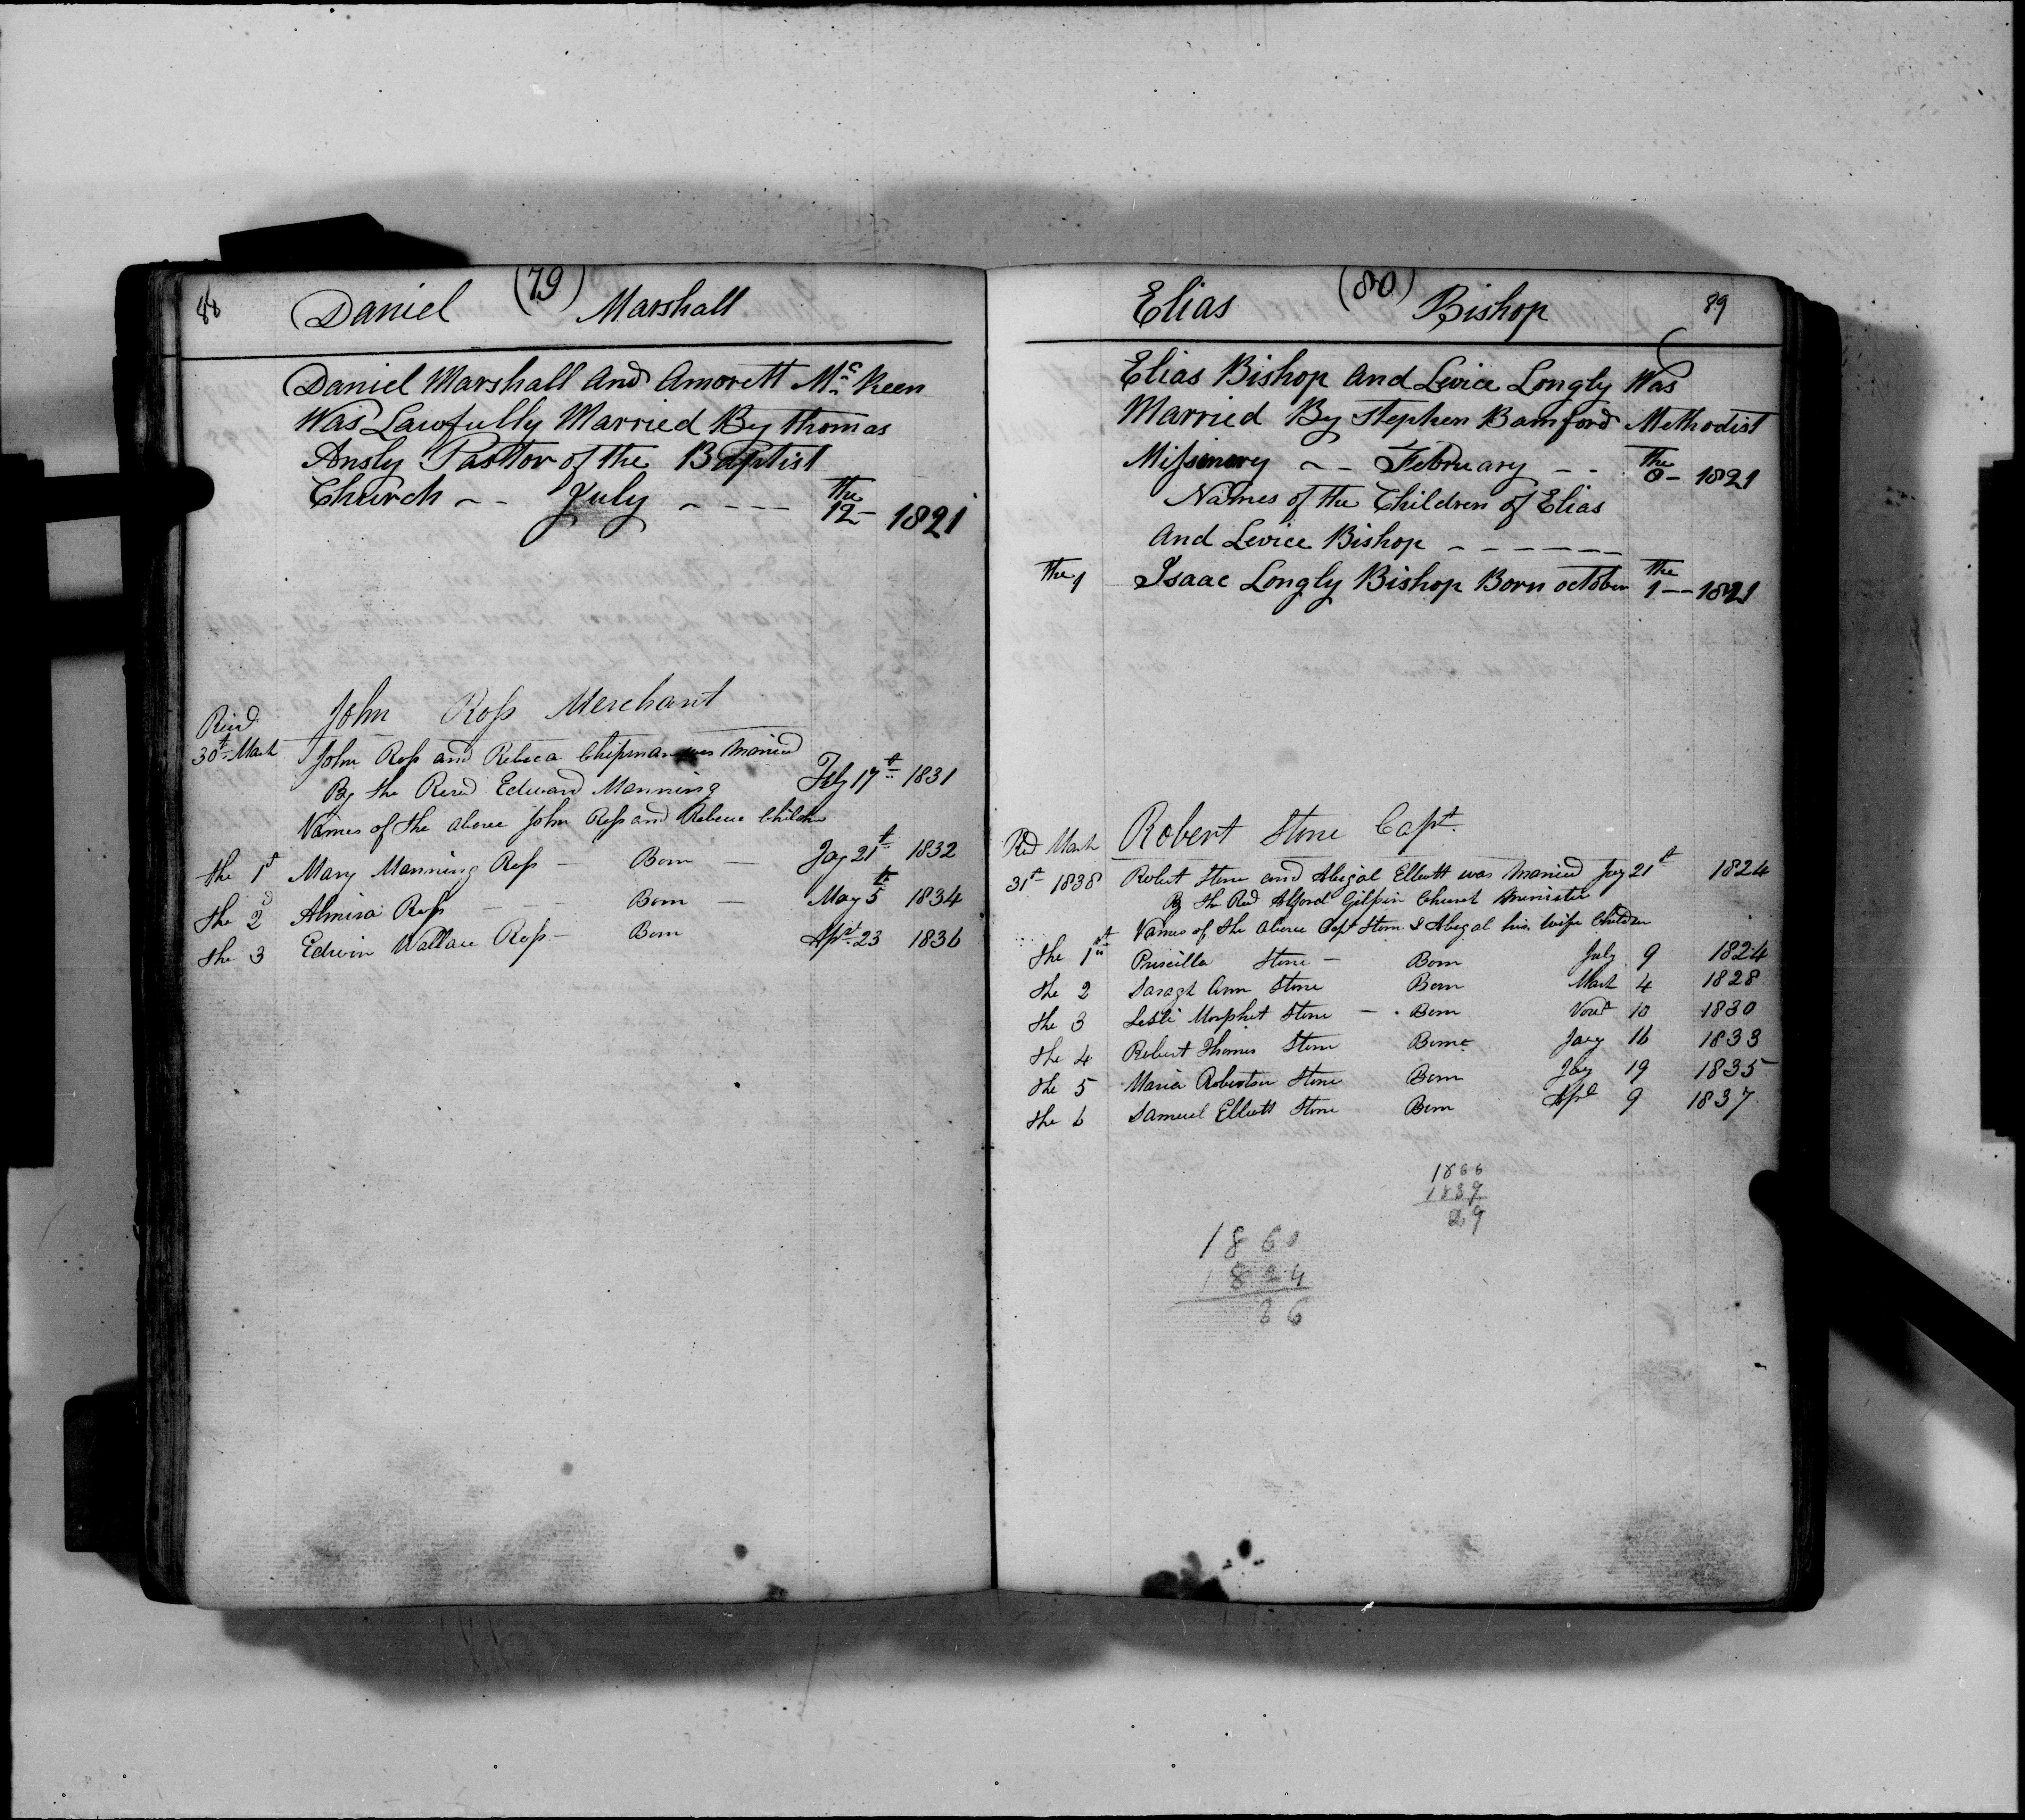 88 (79)
Daniel Marshall
Daniel Marshall And Amorett Mc Keen
Was Lawfully Married By thomas
Ansly Pasttor of the Baptist
Church - - July - - - - the 12 - 1821
John Ross Merchant
30th March John Ross and Rebeca Chipman was Maried
By the Revd Edward Manning Feby 17th 1831
Names of the above John Ross and Rebecca Childn
the 1st Mary Manning Ross - Born - Jay 21th 1832
the 2d Almira Ross - - - Born - May 5th 1834
the 3 Edwin Wallace Ross - Born Apl 23 1836
(80) 89
Elias Bishop
Elias Bishop And Levice Longly Was
Married By Stephen Bamford Methodist
Missinery - - February - - the 8 - 1821
Names of the Children of Elias
And Levice Bishop - - - - - -
the 1 Isaac Longly Bishop Born october the 1 - - 1821
Robert Stone Capt.
31th 1838 Robert Stone and Abigal Elliott was Maried Jay 21th 1824
By the Revd Alford Gilpin Church Minister
Names of the above Capt Stone & Abegal his wife Children
the 1st Priscilla Stone - Born July 9 1824
the 2 Saragh Ann Stone Born March 4 1828
the 3 Morphet Stone - Born Novr 10 1830
the 4 Robert Thomas Stone Born Jany 16 1833
the 5 Maria Robertson Stone Born Jay 19 1835
the 6 Samuel Elliott Stone Born Apl 9 1837
1866
1837
29
1860
1824
36